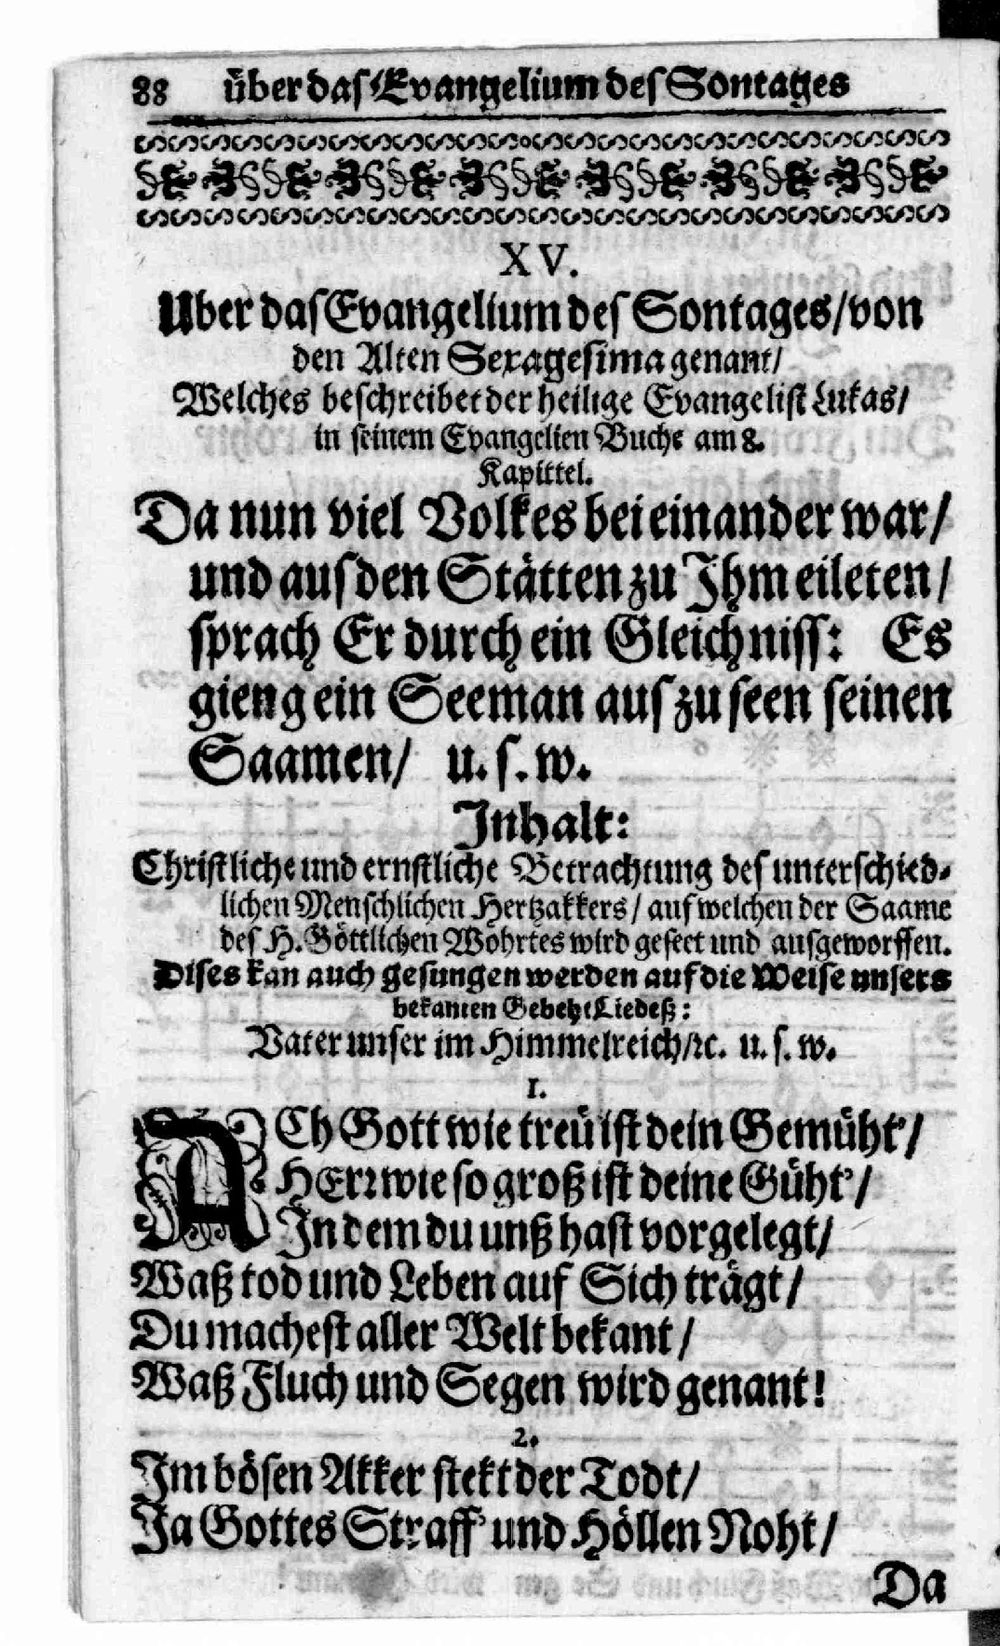 88 über das Evangelium des Sontages
XV.
Uber das Evangelium des Sontages/ von
den Alten Sexagesima genant/
Welches beschreibet der heilige Evangelist Lukas/
in seinem Evangelien Buche am 8.
Kapittel.
Da nun viel Volkes bei einander war/
und aus den Stätten zu Ihm eileten/
sprach Er durch ein Gleichniss: Es
gieng ein Seeman aus zu seen seinen
Saamen/ u. s. w.
Inhalt:
Christliche und ernstliche Betrachtung des unterschied-
lichen Menschlichen Hertzakkers/ auf welchen der Saame
des H. Göttlichen Wohrtes wird geseet und ausgeworffen.
Dises kan auch gesungen werden auf die Weise unsers
bekanten Gebeht Liedeß:
Vater unser im Himmelreich/ ꝛc. u. s. w.
1.
ACh Gott wie treü ist dein Gemüht'/
HErr wie so groß ist deine Güht'/
In dem du unß hast vorgelegt/
Waß tod und Leben auf Sich trägt/
Du machest aller Welt bekant/
Waß Fluch und Segen wird genant!
2.
Im bösen Akker stekt der Todt/
Ja Gottes Straff' und Höllen Noht/
Da